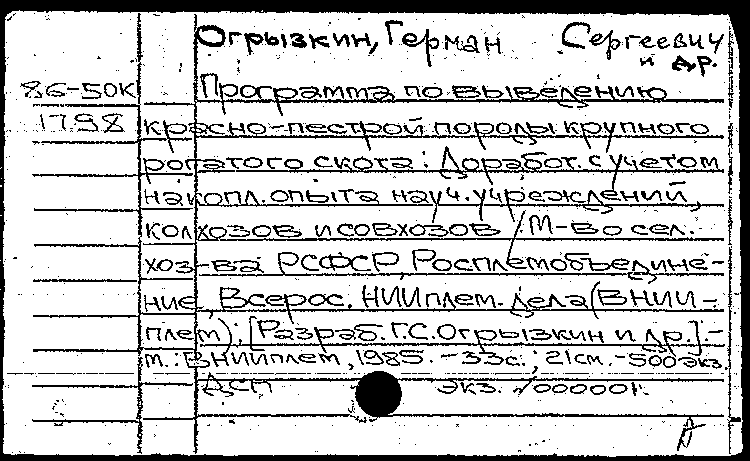 Огрызкин, Герман Сергеевич
и др.
86-50к Программа по выведению
1798 красно-пестрой породы крупного
рогатого скота: Доработ. с учетом
накопл. опыта науч. учреждений,
колхозов и совхозов / М-во сел.
хоз-ва РСФСР, Росплемобъедине-
ние, Всерос. НИИ плем. дела (ВНИИ-
плем); [Разраб. Г.С. Огрызкин и др.].-
м.: ВНИИплем, 1985. - 33с.; 21см. - 500 экз.
ДСП экз.